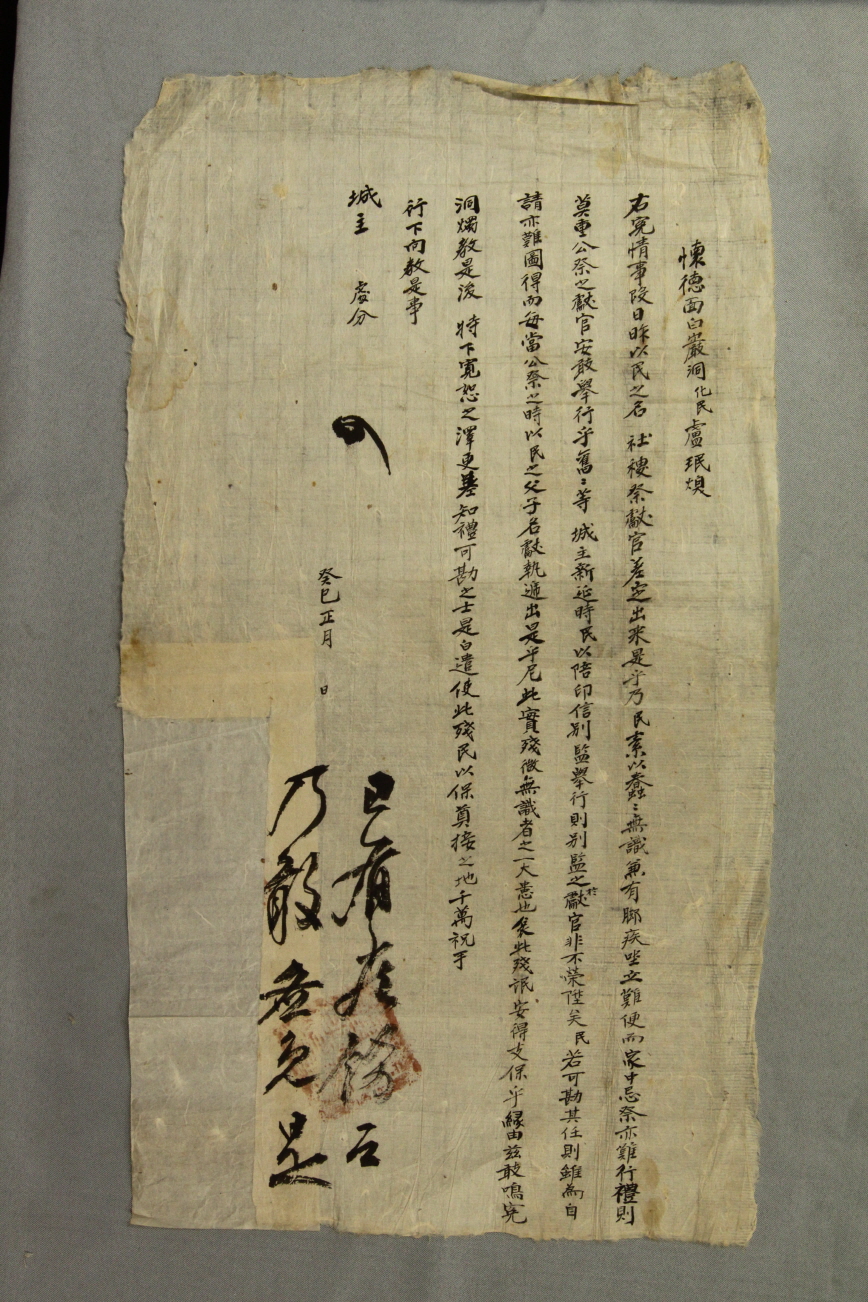 懷德面白巖洞化民盧珉煥
右寃情事段日昨以民之名 社稷祭獻官差定出來是乎乃民素以蠢〻無識兼有脚疾坐立難便而家中忌祭亦難行禮則
莫重公祭之獻官安敢擧行乎舊〻等 城主新延時民以陪印信別監擧行則別監之於獻官非不榮陞矣民若可勘其任則雖爲自
請亦難圖得而每當公祭之時以民之父子名獻執遞出是乎尼此實殘微無識者之一大患也矣此殘氓安得支保乎緣由玆敢鳴寃
洞燭敎是後 特下寬恕之澤更基知禮可勘之士是白遣使此殘民以保奠接之地千萬祝手
行下向敎是事
城主 處分
癸巳正月 日
已有
乃敢 免 是